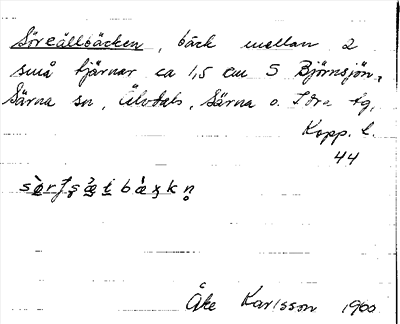 Söreällbäcken, bäck mellan 2
små tjärnar ca 1,5 cm S Björnsjön,
Särna sn, Älvdals, Särna o. Idre tg,
Kopp. l.
44
Åke Karlsson 1900